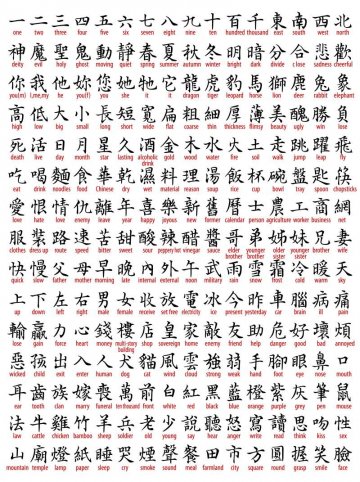 一 二 三 四 五 六 七 八 九 十 百 千 東 南 西 北
one two three four five six seven eight nine ten hundred thousand east south west north
神 魔 聖 鬼 動 靜 春 夏 秋 冬 明 暗 分 合 悲 歡
deity evil holy ghost moving quiet spring summer autumn winter bright dark divide close sadness cheerful
你 我 他 妳 您 她 牠 它 龍 虎 豹 馬 獅 鹿 兔 象
you(m) I,me,my he you(f) you she it it dragon tiger leopard horse lion deer rabbit elephant
高 低 大 小 長 短 寬 扁 粗 細 厚 薄 美 醜 勝 負
high low big small long short wide flat coarse thin thickness flimsy beauty ugly win lose
死 活 日 月 星 久 酒 金 木 水 火 土 走 跳 躍 飛
death live day moon star lasting alcoholic drink gold wood water fire soil walk jump leap fly
吃 喝 麵 食 華 乾 濕 料 理 湯 飯 杯 碗 盤 匙 筷
eat drink noodles food Chinese dry wet material reason soup rice cup bowl tray spoon chopsticks
愛 恨 情 仇 離 年 喜 樂 新 舊 曆 士 農 工 商 網
love hate love enemy leave year happy joyous new former calendar person agriculture worker business net
服 裝 路 速 苦 甜 酸 辣 醋 醬 哥 弟 姊 妹 兄 妻
clothes dress up route speed bitter sweet sour peppery hot vinegar sauce elder brother younger brother elder sister younger sister brother wife
快 慢 父 母 早 晚 內 外 午 武 雨 雪 霜 冷 暖 天
quick slow father mother morning late internal external noon military rain snow frost cold warm sky
上 下 左 右 男 女 收 電 氣 冰 今 昨 車 腦 病 痛
up down left right male female receive electricity ice present yesterday car brain ill pain
輸 贏 力 心 錢 樓 店 皇 家 敵 友 助 危 好 壞 煩
lose gain force heart money multi-story building shop sovereign home enemy friend help danger good bad annoyed
惡 孩 出 入 人 犬 貓 風 雲 強 弱 手 腳 眼 鼻 口
wicked child exit enter human dog cat wind cloud strong weak hand foot eye nose mouth
耳 齒 族 嫁 喪 萬 前 白 紅 黑 藍 橙 紫 灰 筆 鼠
ear tooth clan marry funeral ten thousand front white red black blue orange purple grey pen mouse
法 牛 雞 竹 羊 兵 老 少 說 聽 怒 寫 讀 思 吻 性
law cattle chicken bamboo sheep soldier old young say hear anger write read think kiss sex
山 廟 燈 紙 睡 哭 煙 聲 餐 田 市 方 圓 握 笑 臉
mountain temple lamp paper sleep cry smoke sound meal farmland city square round grasp smile face